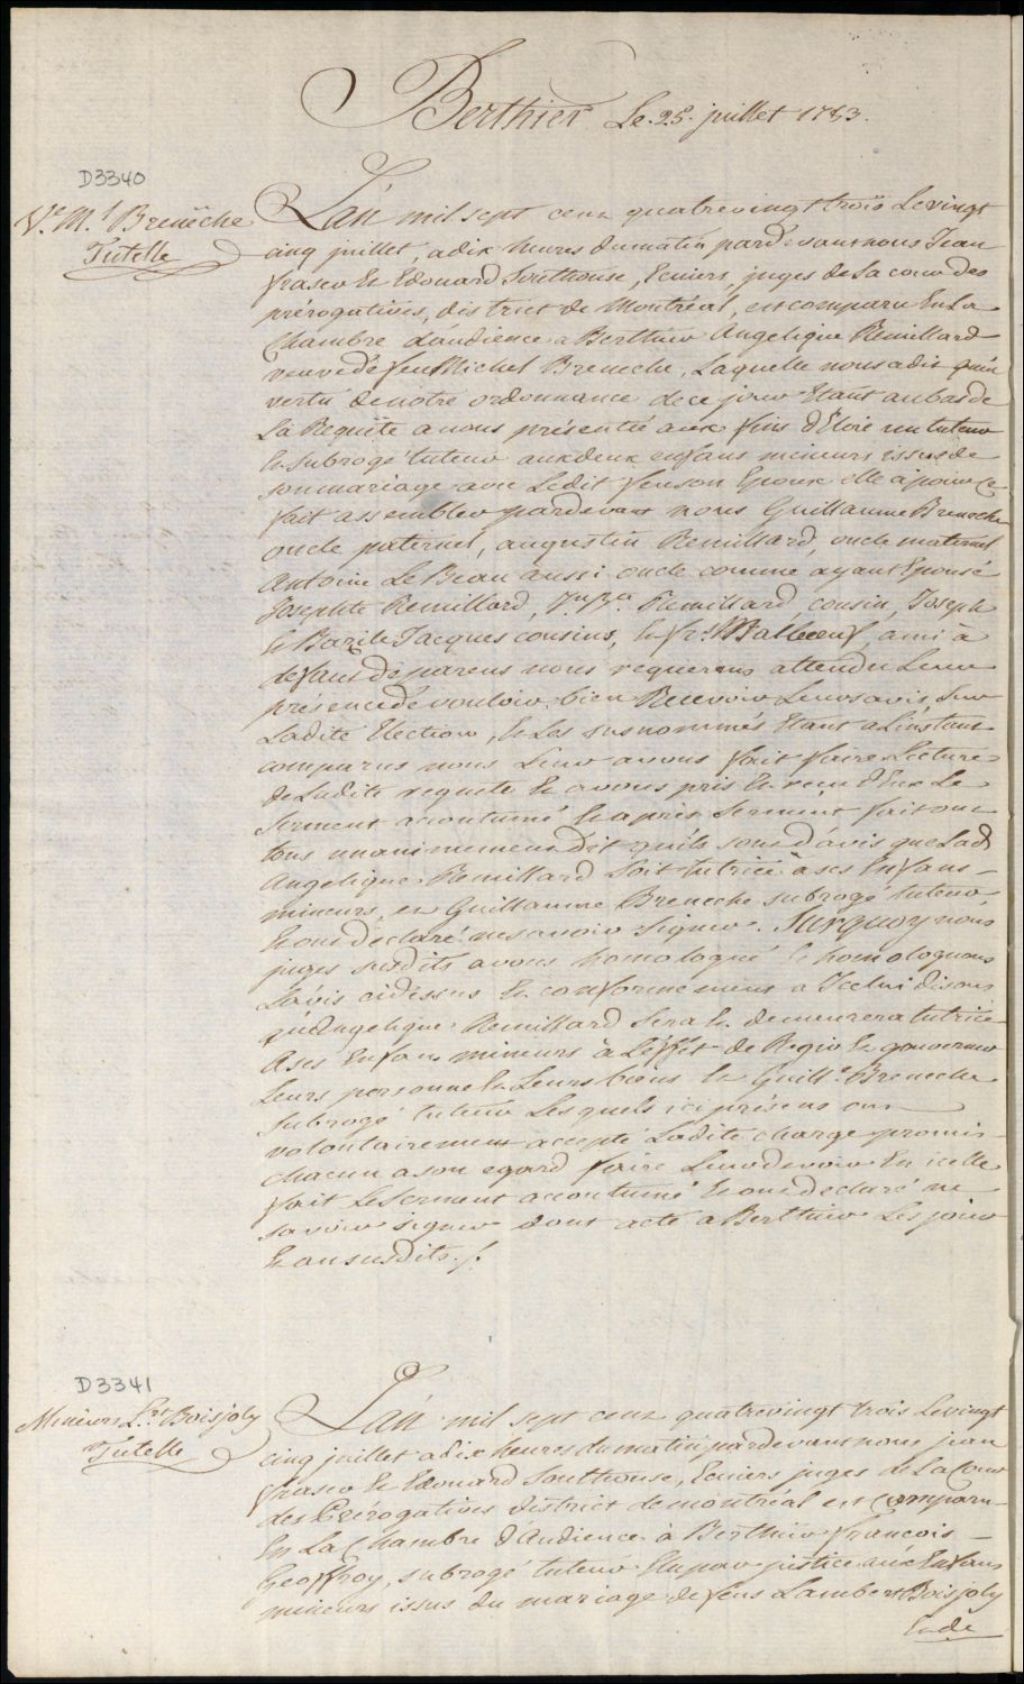 Berthier Le 25 juillet 1783.
D3340
Ve. M.l Breneche
Tutelle
L'an mil sept cent quatrevingt trois Le vingt
cinq juillet, a dix heures du matin pardevant nous Jean
fraser Et Edouard Southouse, Ecuiers, juges de La cour des
prérogatives, district de Montréal, est comparu En La
Chambre d'audience a Berthier Angelique Remillard
veuve de feu Michel Breneche, Laquelle nous a dit qu'en
vertu de notre ordonnance de ce jour Etant au bas de
La Requête a nous présentée aux fins d'Elire un tuteur
Et subrogé tuteur aux deux enfans mineurs issus de
son mariage avec Ledit feu son Epoux elle a pour ce
fait assembler pardevant nous Guillaume Breneche
oncle paternel, augustin Remillard, oncle maternel
Antoine Le Beau aussi oncle comme ayant Epousé
Josephte Remillard, Remillard cousin, Joseph
Et Bazile Jacques cousins, Et fr. Malboeuf ami à
defaut de parens nous requerans attendu Leur
présence de vouloir bien Recevoir Leurs avis sur
Ladite Election, Et Les susnommés Etant a L'instant
comparus nous Leur avons fait faire Lecture
de Ladite requete Et avons pris Et reçu d'Eux Le
Serment accoutumé Et après Serment fait ont
tous unanimement dit qu'ils sont d'avis que Lad
Angelique Remillard Soit tutrice à ses Enfans
mineurs, et Guillaume Breneche subrogé tuteur
Et ont declaré ne savoir signer. Surquoy nous
juges susdits avons homologué Et homologuons
L'avis cidessus Et conformement a Icelui disons
qu'Angelique Remillard Sera Et demeurera tutrice
A ses Enfans mineurs à L'effet de Regir Et gouverner
Leurs personne Et Leurs biens Et Guill.e Breneche
Subrogé tuteur Lesquels ici présens ont
volontairement accepté Ladite charge promis
chacun a son egard faire Leur devoir En icelle
fait Le Serment accoutumé Et ont declaré ne
savoir signer dont acte a Berthier Les jour
Et an susdits./.
D3341
Mineurs L.rt Boisjoly
Tutelle
L'an mil sept cent quatrevingt trois Le vingt
cinq juillet a dix heures du matin pardevant nous jean
fraser Et Edouard Southouse, Ecuiers juges de La Cour
des Prérogatives district de montréal est comparu
En La Chambre d'Audience à Berthier françois
Geoffroy, subrogé tuteur Elu par justice aux Enfans
mineurs issus du mariage de feus Lambert Boisjoly
Et de